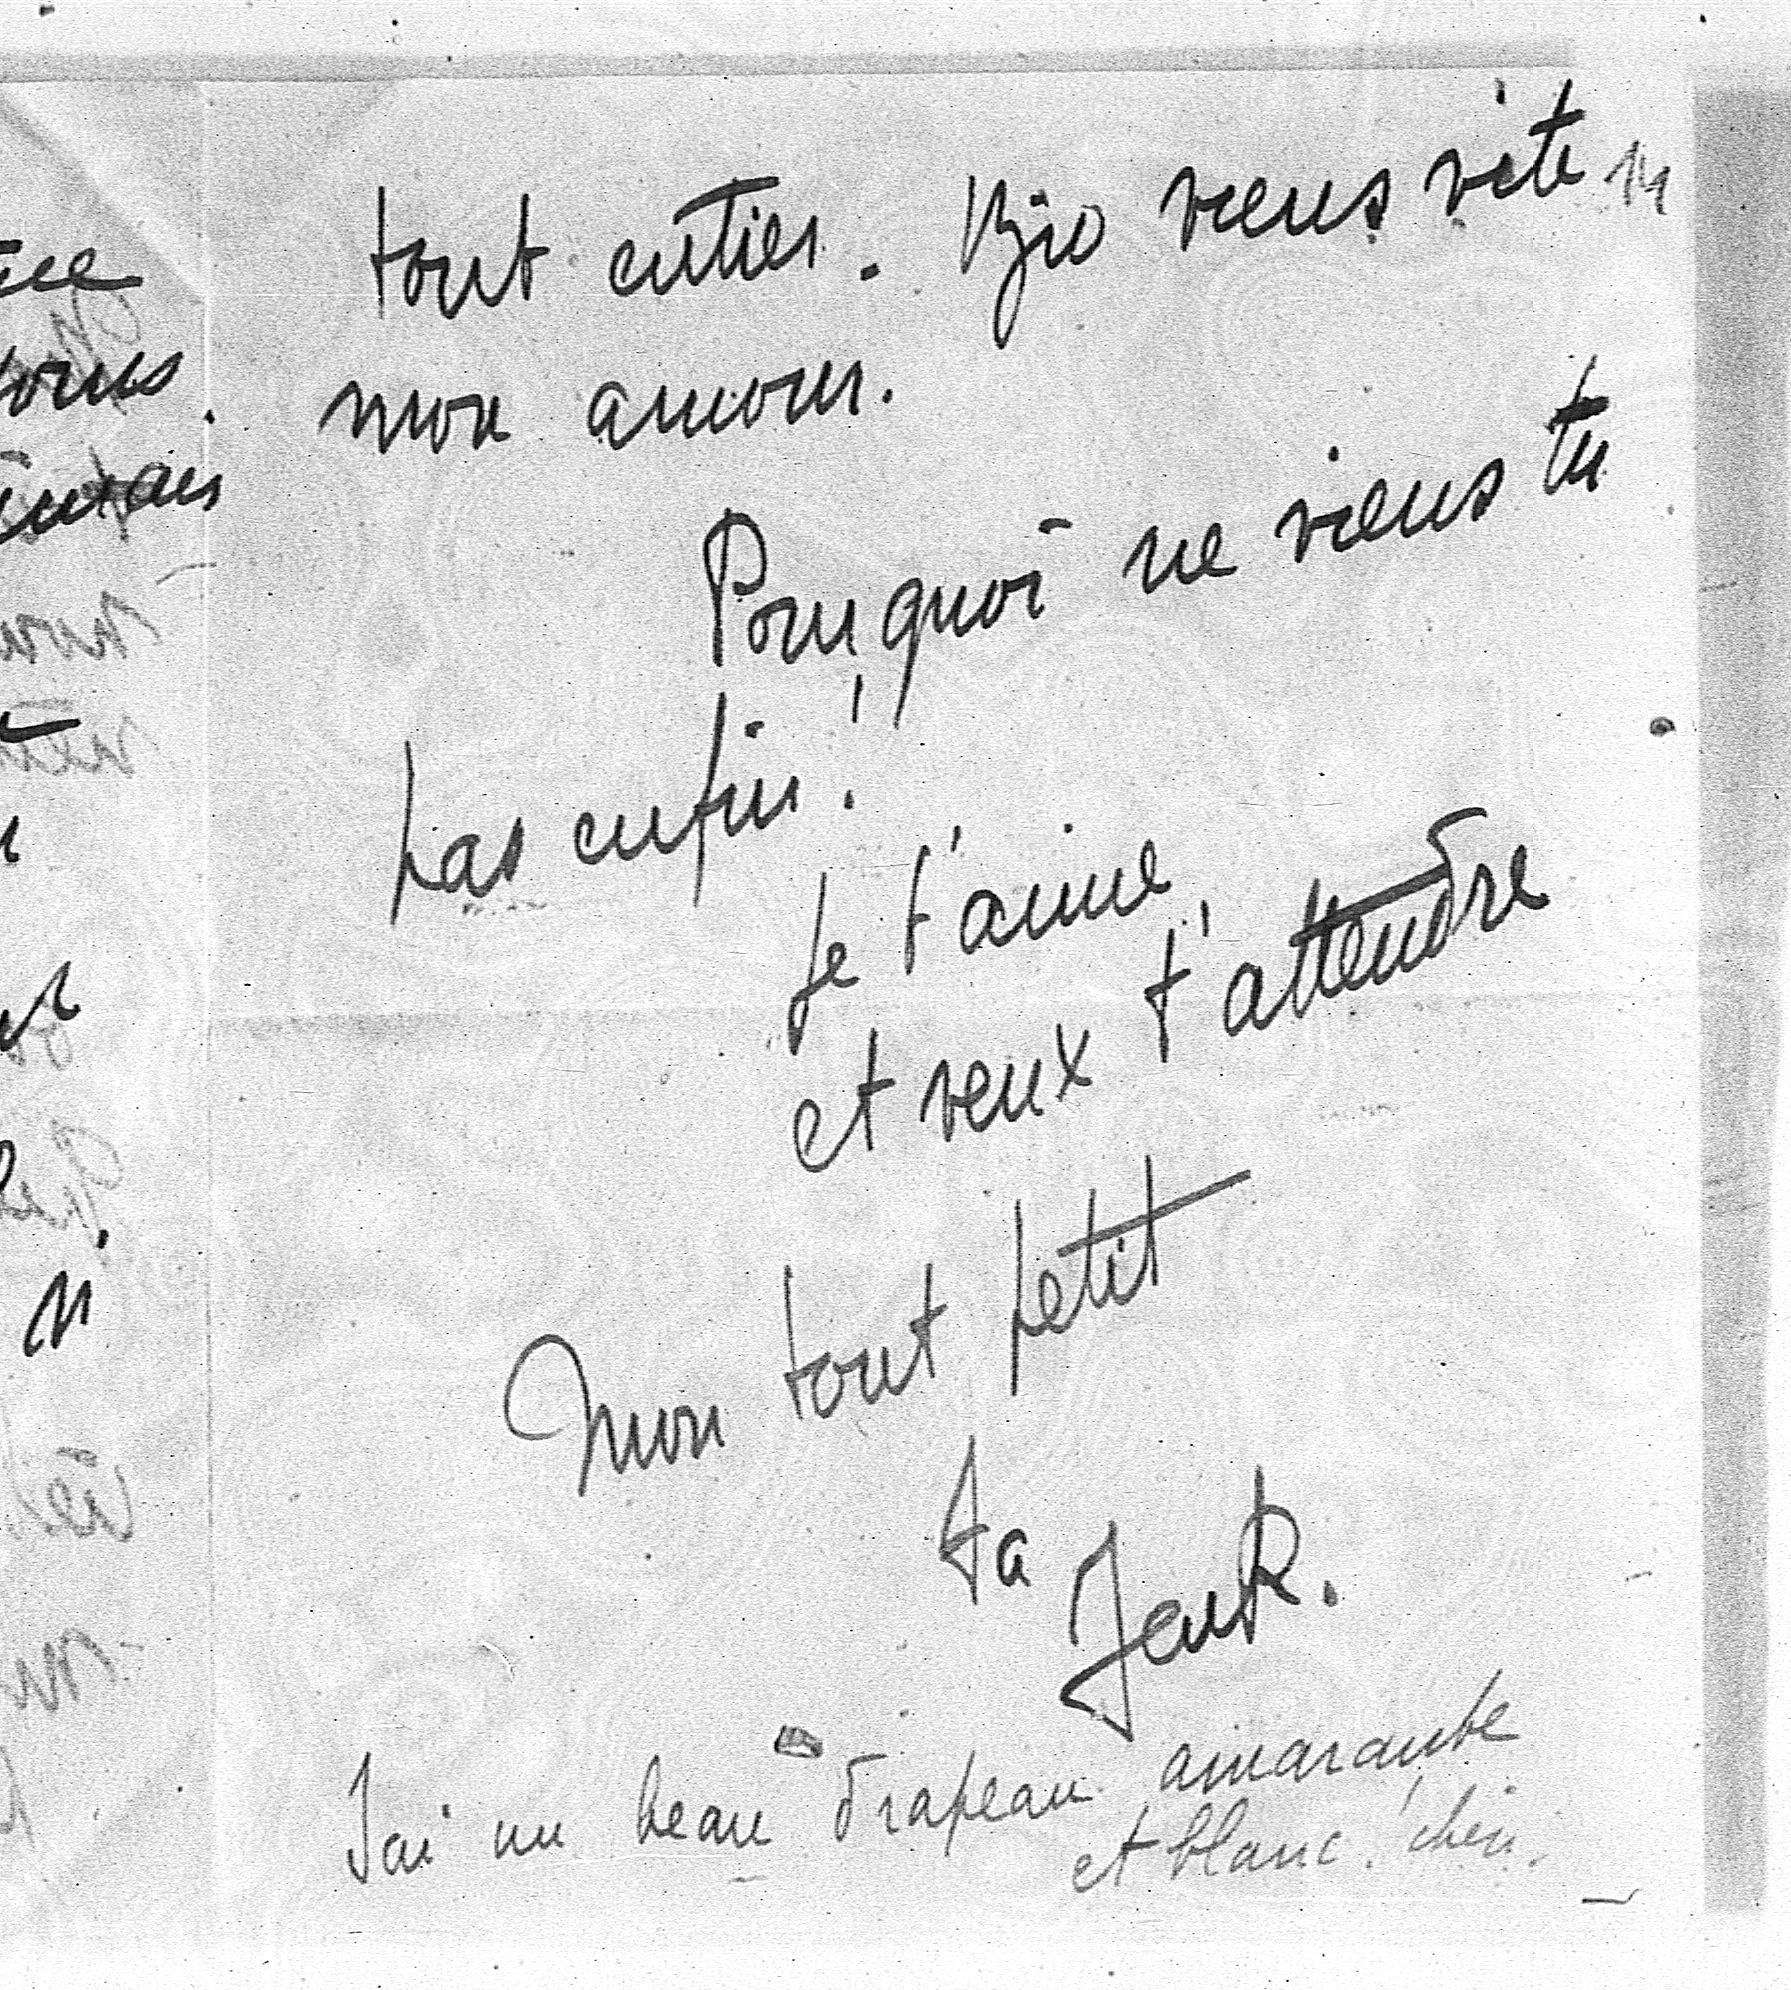 tout entier. Bijo viens vite
mon amour.
Pourquoi ne viens tu
pas enfin!
Je t'aime
et veux t'attendre
Mon tout petit
ta
JanR.
J'ai un beau drapeau amarante
et blanc! chéri.